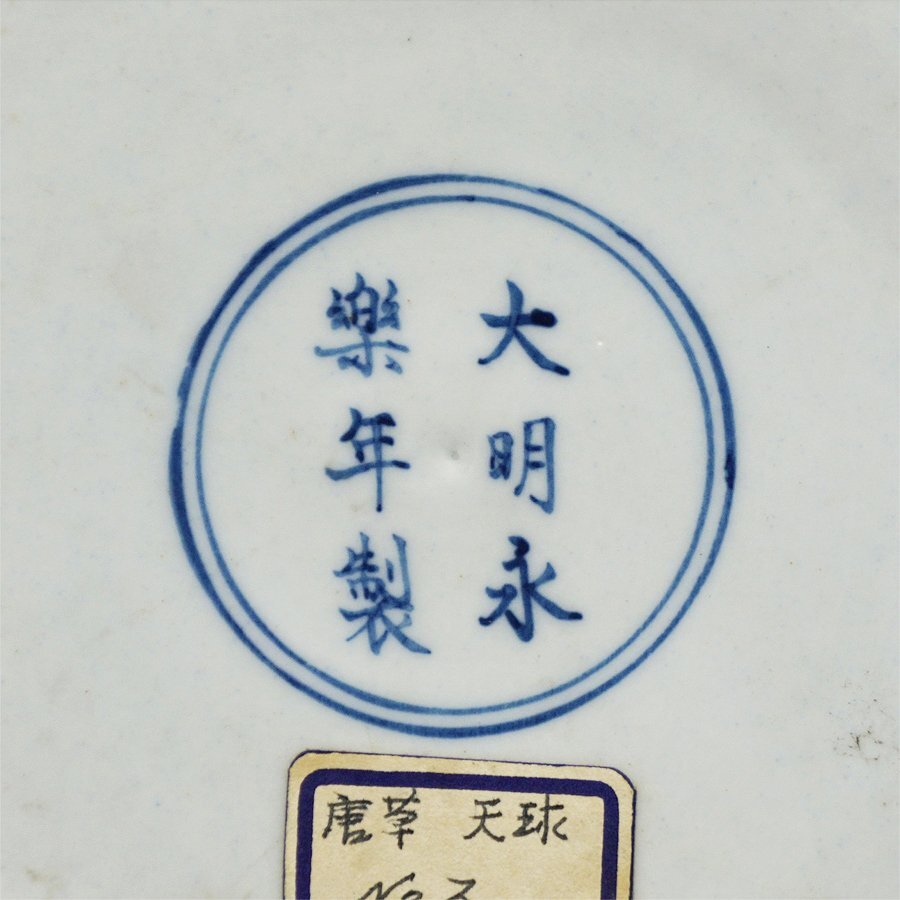 大明永
樂年製
唐草 天球
No 3